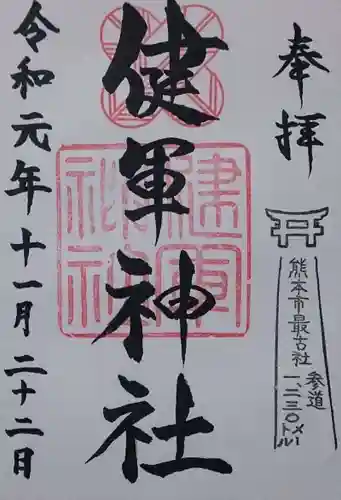 奉拝
熊本市最古社
参道
一、二三〇メートル
健軍神社
令和元年十一月二十二日